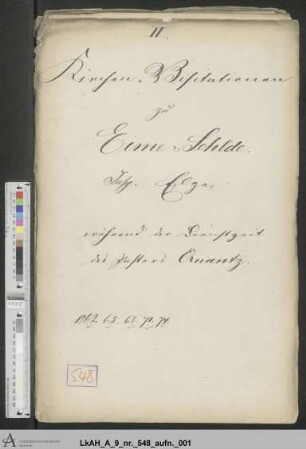 II.
Kirchen-Visitationen
zu
Eime-Sehlde,
Insp. Elze,
während der Dienstzeit
des Pastors Quantz.
1862. 65. 68. 71. 74.
548
LkAH_A_9_nr._548_aufn._001